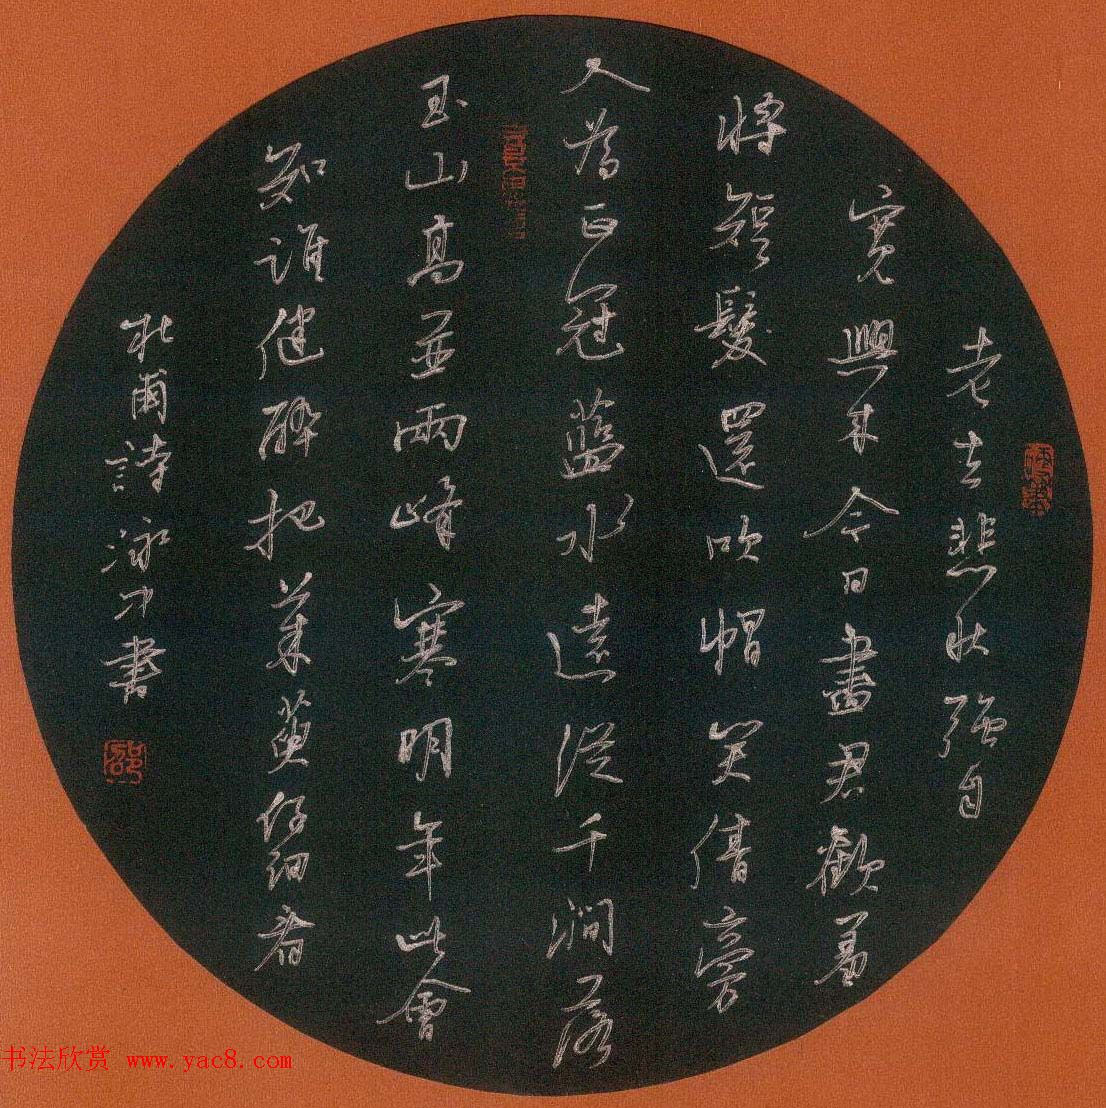 老去悲秋強自
寬興來今日盡君歡羞
將短髮還吹帽笑倩旁
人為正冠藍水遠從千澗落
玉山高並兩峰寒明年此會
知誰健醉把茱萸仔細看
杜甫詩 泳才書
邵
书法欣赏 www.yac8.com